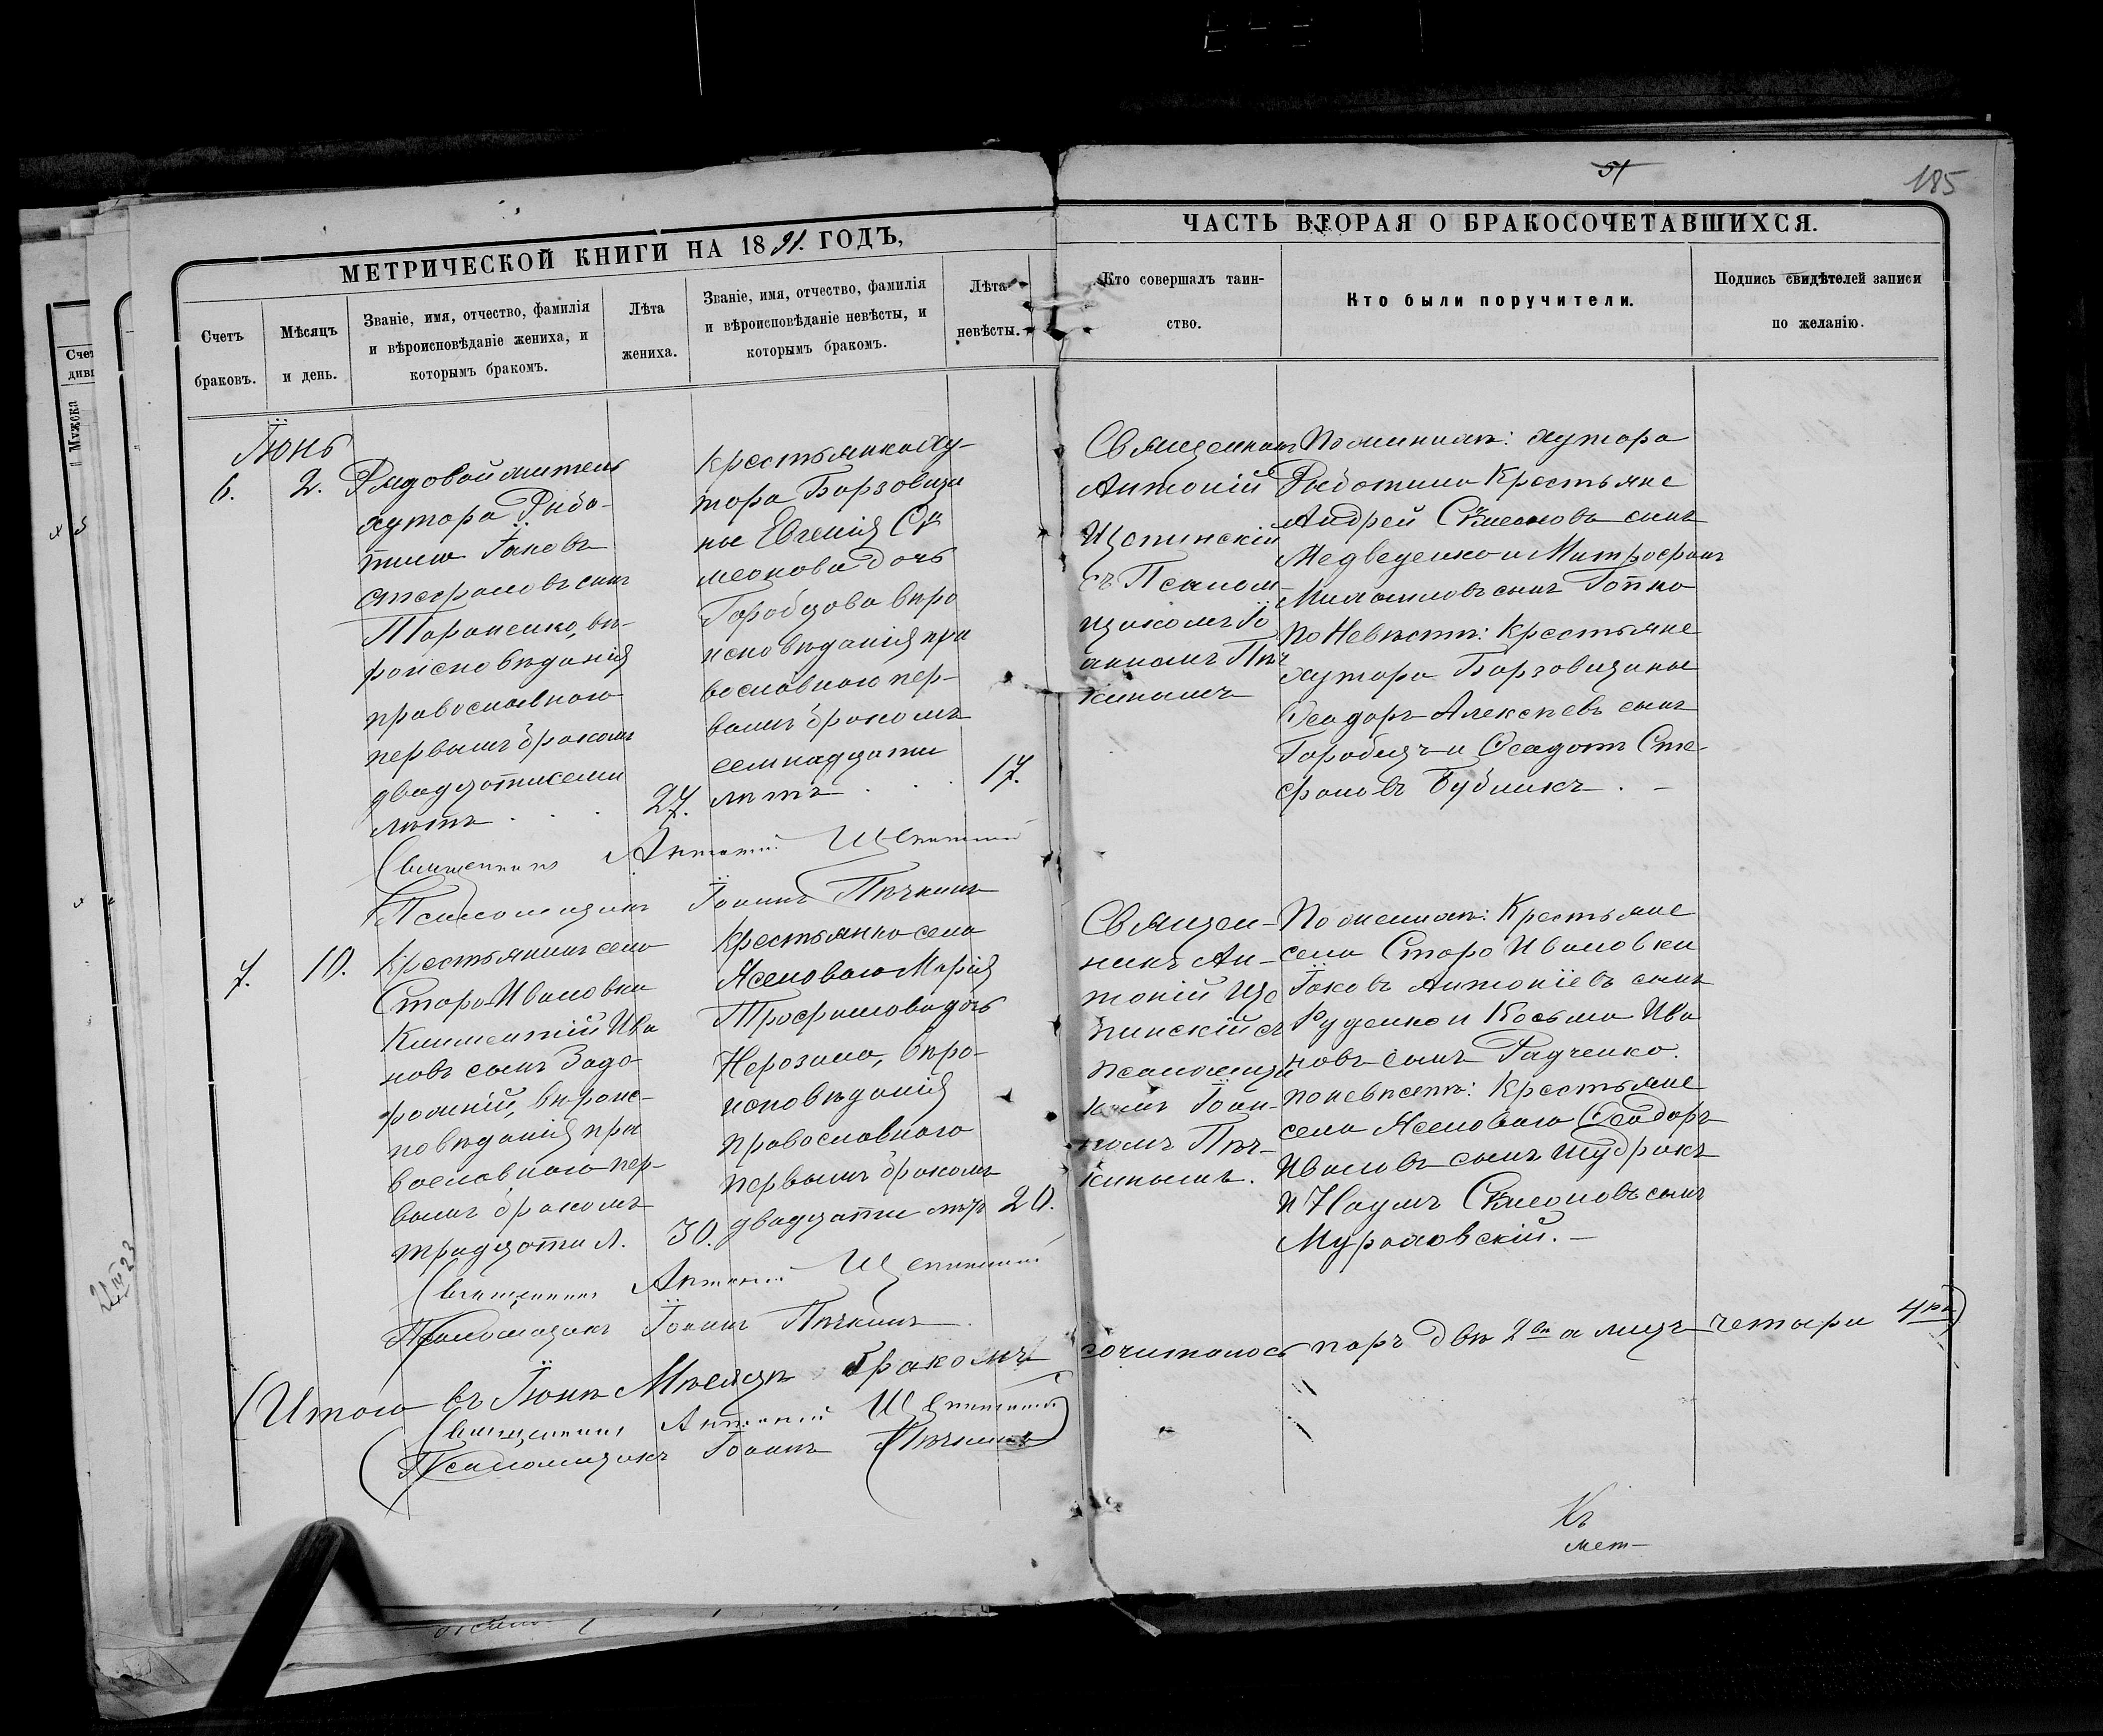 51
185
МЕТРИЧЕСКОЙ КНИГИ НА 1891. ГОДЪ,
ЧАСТЬ ВТОРАЯ О БРАКОСОЧЕТАВШИХСЯ.
Счетъ
браковъ.
Мѣсяцъ
и день.
Званіе, имя, отчество, фамилія
и вѣроисповѣданіе жениха, и
которымъ бракомъ.
Лѣта
жениха.
Званіе, имя, отчество, фамилія
и вѣроисповѣданіе невѣсты, и
которымъ бракомъ.
Лѣта
невѣсты.
Кто совершалъ таин-
ство.
Кто были поручители.
Подпись свидѣтелей записи
по желанію.
Іюнь
6.
2.
Рядовой житель
хутора Рябо-
тина Іаковъ
Стефановъ сынъ
Тараненко, вѣ-
роисповѣданія
православнаго
первымъ бракомъ
двадцати семи
лѣтъ . . .
27.
Крестьянка ху-
тора Борзовщи
ны Евгенія Сѵ
меонова дочь
Горобцова вѣро
исповѣданія пра
вославнаго пер-
вымъ бракомъ
семнадцати
лѣтъ . . .
17.
Священникъ
Антоній
Щепинскій
съ Псалом-
щикомъ Іо
анномъ Пѣч
кинымъ
По женихѣ: хутора
Работина Крестьяне
Андрей Сѵмеоновъ сынъ
Медведенко и Митрофанъ
Михаиловъ сынъ Гопко
по Невѣстѣ: Крестьяне
хутора Борзовщины
Ѳеодоръ Алексѣевъ сынъ
Горобецъ и Ѳеодотъ Сте-
фановъ Бубликъ . -
Священникъ Антоній Щепинскій
Псаломщикъ Іоаннъ Пѣчкинъ
7.
10.
Крестьянинъ села
Старо Ивановки
Климентій Ива
новъ сынъ Задо-
рожній, вѣроис-
повѣданія пра
вославнаго пер-
вымъ бракомъ
тридцати л.
30.
Крестьянка села
Ясеноваго Марія
Трофимова дочь
Нерозина, вѣро-
исповѣданія
православнаго
первымъ бракомъ
двадцати лѣтъ
20.
Священ-
никъ Ан-
тоній Ще
пинскій съ
псаломщи
комъ Іоан-
номъ Пѣч-
кинымъ.
По женихѣ: Крестьяне
села Старо Ивановки
Іаковъ Антоніевъ сынъ
Руденко и Косьма Ива
новъ сынъ Радченко.
по невѣстѣ: Крестьяне
села Ясеноваго Ѳеодоръ
Ивановъ сынъ Шудракъ
и Наумъ Сѵмеоновъ сынъ
Мураховскій. -
Священникъ Антоній Щепинскій
Псаломщикъ Іоаннъ Пѣчкинъ
Итого въ Іюнѣ Мѣсяцѣ бракомъ сочиталось паръ двѣ 2вѣ а лицъ четыри 4ри
Священникъ Антоній Щепинскій
Псаломщикъ Іоаннъ Пѣчкинъ
Къ
мет-
Мужска